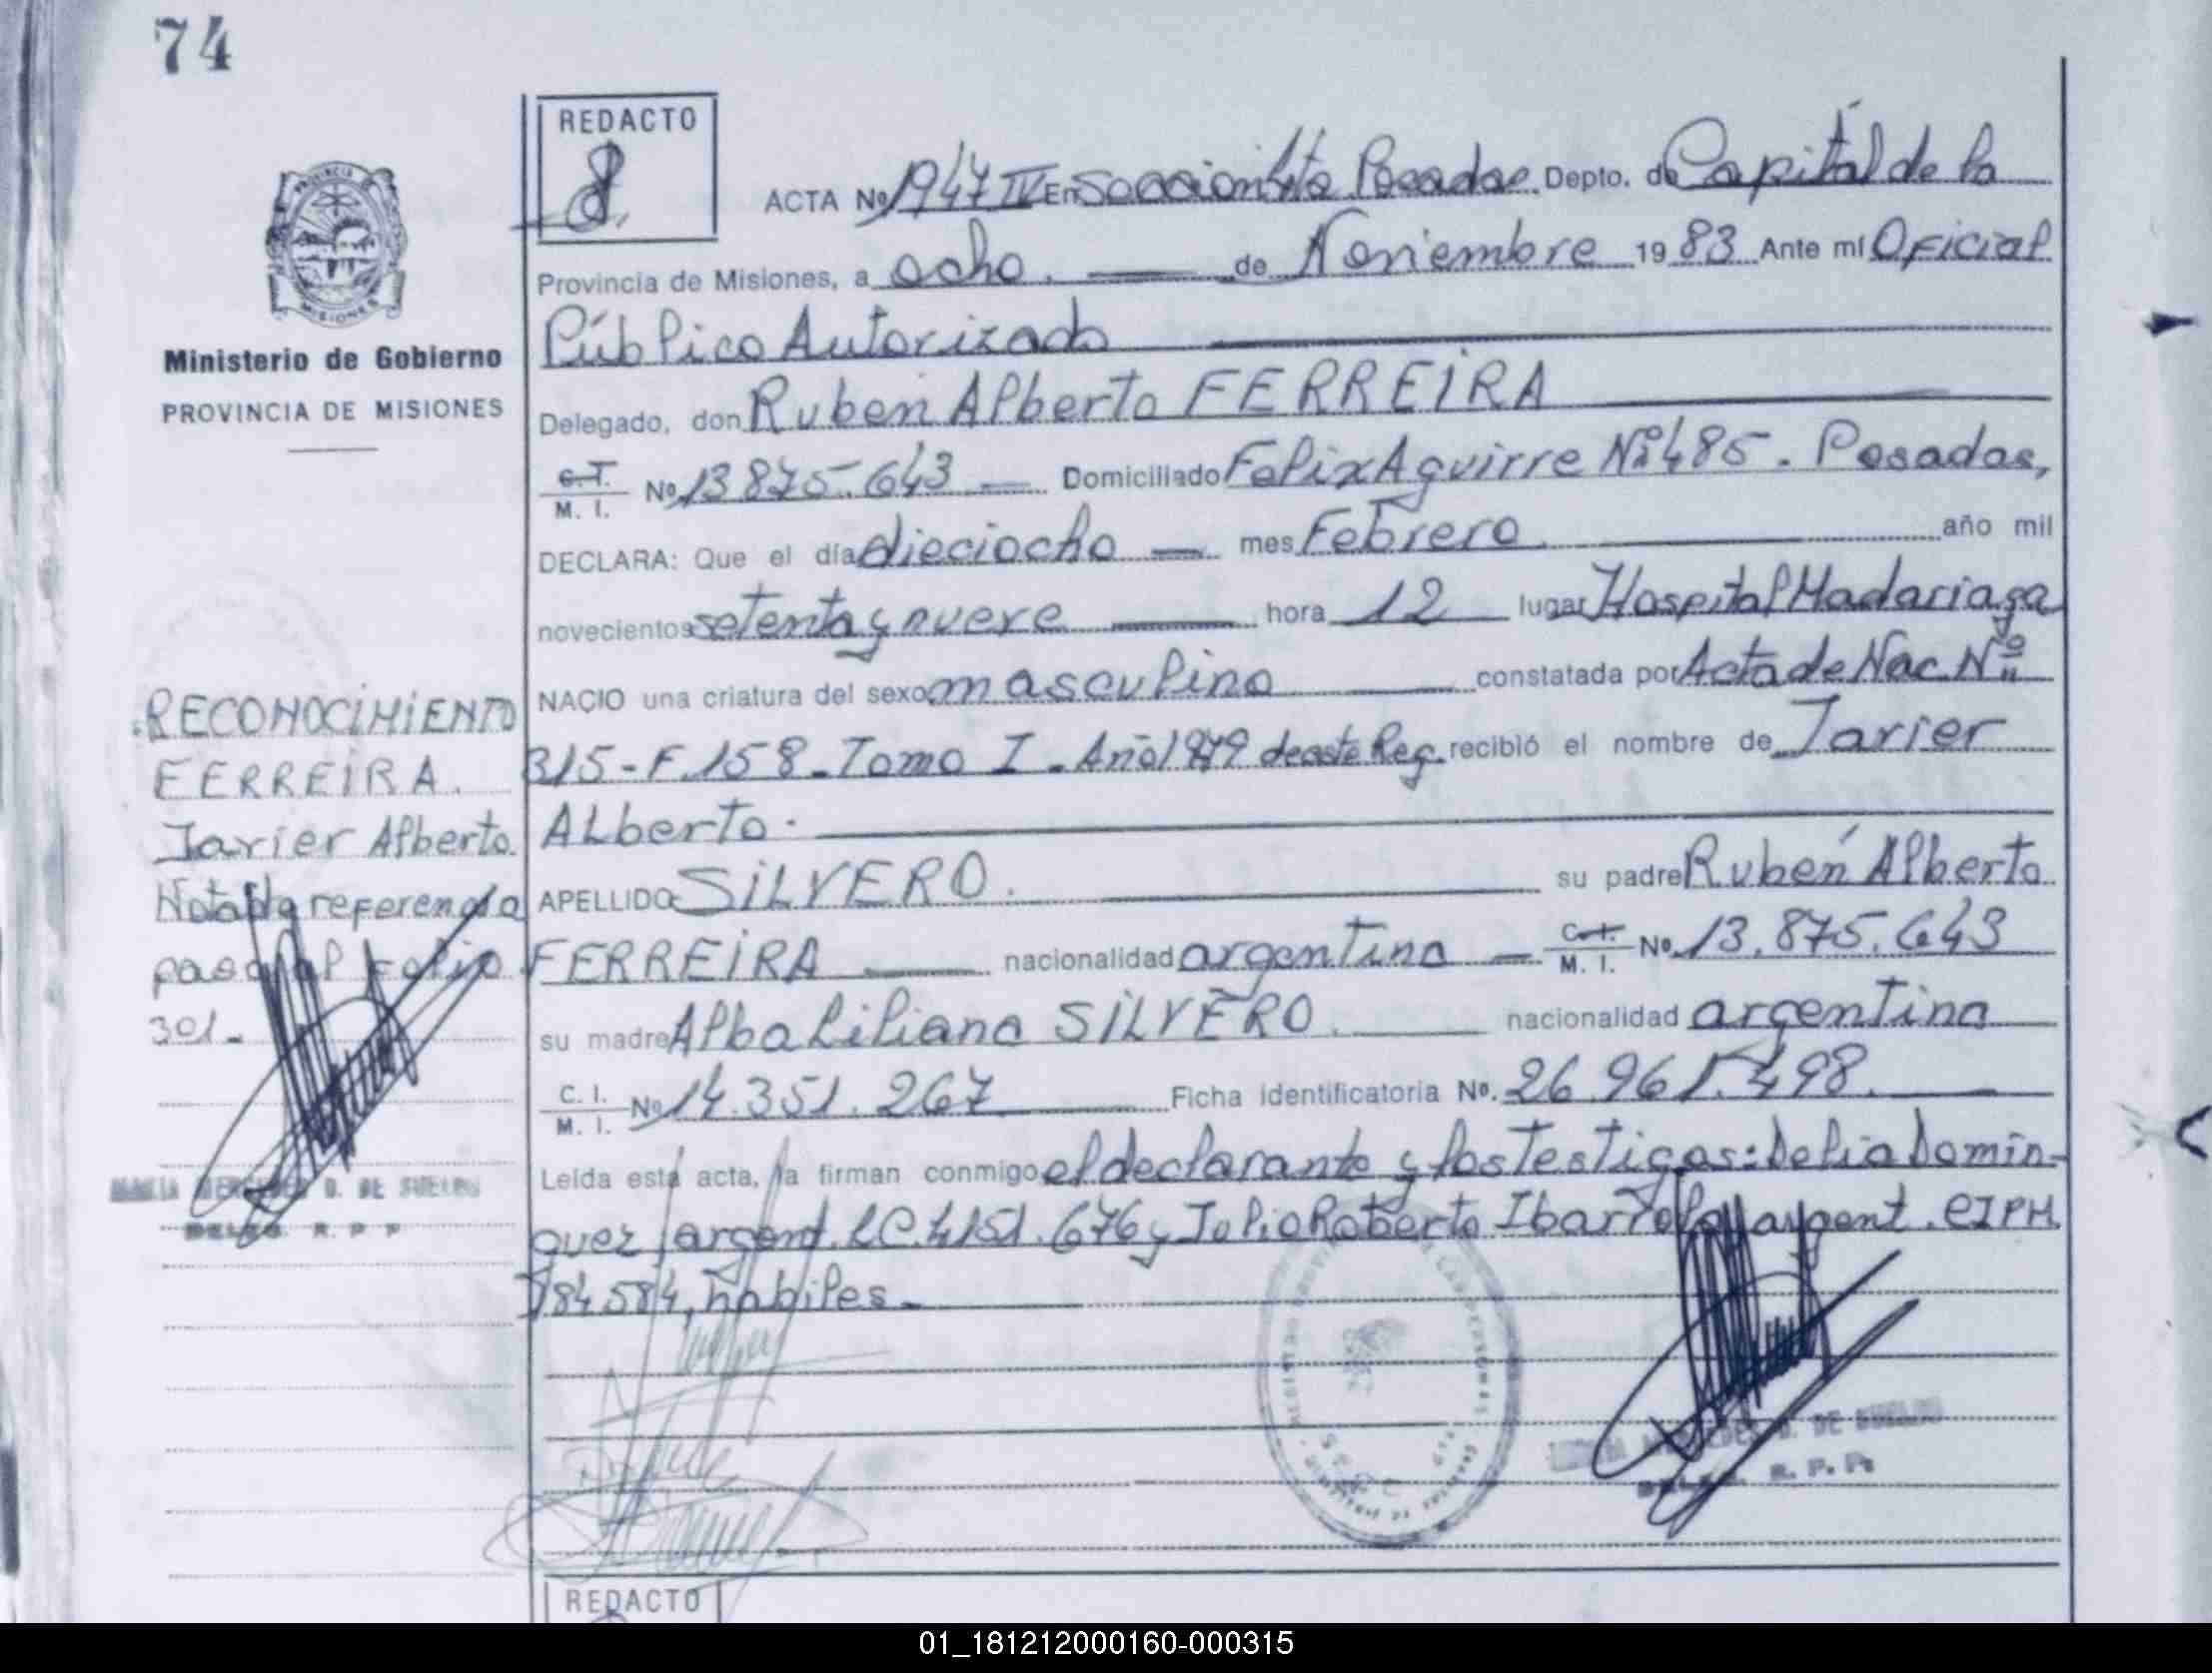 74
REDACTO
ACTA Nº 1947 IV En Sección 4ta Posadas Depto. de Capital de la
Provincia de Misiones, a ocho. de Noviembre 1983 Ante mí Oficial
Público Autorizado
Delegado, don Rubén Alberto FERREIRA
C.I. M. I. Nº 13.875.643 Domiciliado Felix Aguirre Nº 485. Posadas,
DECLARA: Que el día dieciocho mes Febrero año mil
novecientos setenta y nueve hora 12 lugar Hospital Madariaga
NACIO una criatura del sexo masculino constatada por Acta de Nac. Nº
315-F.158-Tomo I-Año 1979 de este Reg. recibió el nombre de Javier
Alberto.
APELLIDO SILVERO. su padre Rubén Alberto
FERREIRA nacionalidad argentina C.I. M. I. Nº. 13.875.643
su madre Alba Liliana SILVERO. nacionalidad argentina
C. I. M. I. Nº 14.351.267 Ficha identificatoria Nº. 26.961.498.
Leída esta acta, la firman conmigo el declarante y los testigos: Delia Domin-
guez argent. LC. 4151.676 y Julio Roberto Ibarrola argent. CIPM.
184584, hábiles.-
Ministerio de Gobierno
PROVINCIA DE MISIONES
RECONOCIMIENTO
FERREIRA.
Javier Alberto.
Nota de referencia
pasa al Folio
301.-
D. DE SUELDO
R. P. P.
D. DE SUELDO
R. P. P.
REDACTO
01_181212000160-000315